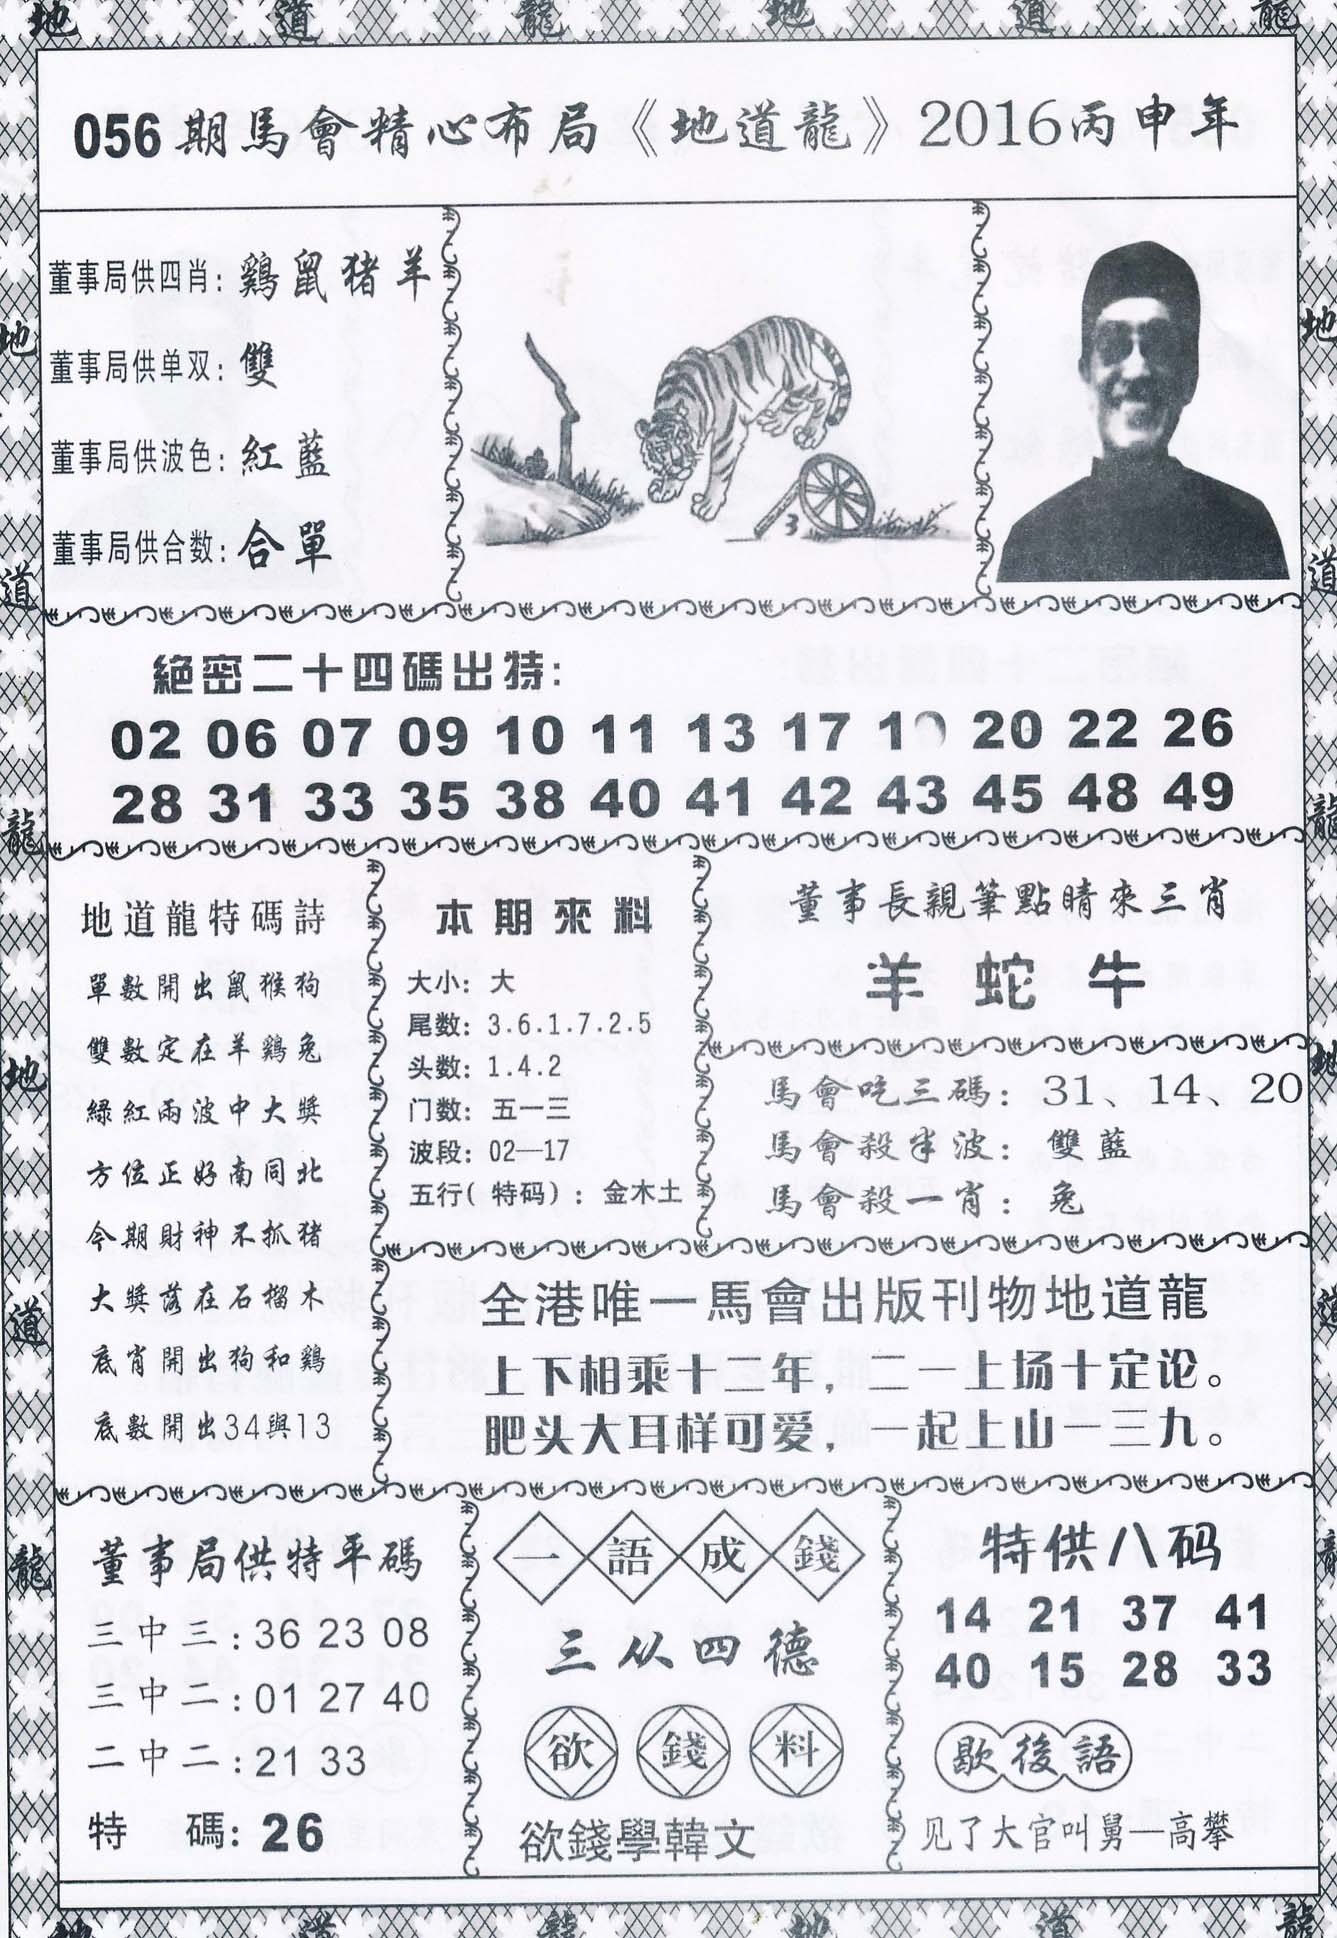 地 道 龍 地 道 龍
056期馬會精心布局《地道龍》2016丙申年
董事局供四肖：鷄鼠猪羊
董事局供单双：雙
董事局供波色：紅藍
董事局供合数：合單
3
絕密二十四碼出特：
02 06 07 09 10 11 13 17 20 22 26
28 31 33 35 38 40 41 42 43 45 48 49
地道龍特碼詩
單數開出鼠猴狗
雙數定在羊鷄兔
緑紅兩波中大獎
方位正好南同北
今期財神不抓猪
大獎落在石榴木
底肖開出狗和鷄
底數開出34與13
本期來料
大小：大
尾数：3.6.1.7.2.5
头数：1.4.2
门数：五一三
波段：02—17
五行(特码)：金木土
董事長親筆點睛來三肖
羊 蛇 牛
馬會吃三碼：31、14、20
馬會殺半波：雙藍
馬會殺一肖：兔
全港唯一馬會出版刊物地道龍
上下相乘十二年，二一上场十定论。
肥头大耳样可爱，一起上山一二九。
董事局供特平碼
三中三：36 23 08
三中二：01 27 40
二中二：21 33
特碼：26
一語成錢
三从四德
欲錢料
欲錢學韓文
特供八码
14 21 37 41
40 15 28 33
歇後語
见了大官叫舅—高攀
地 道 龍 地 道 龍